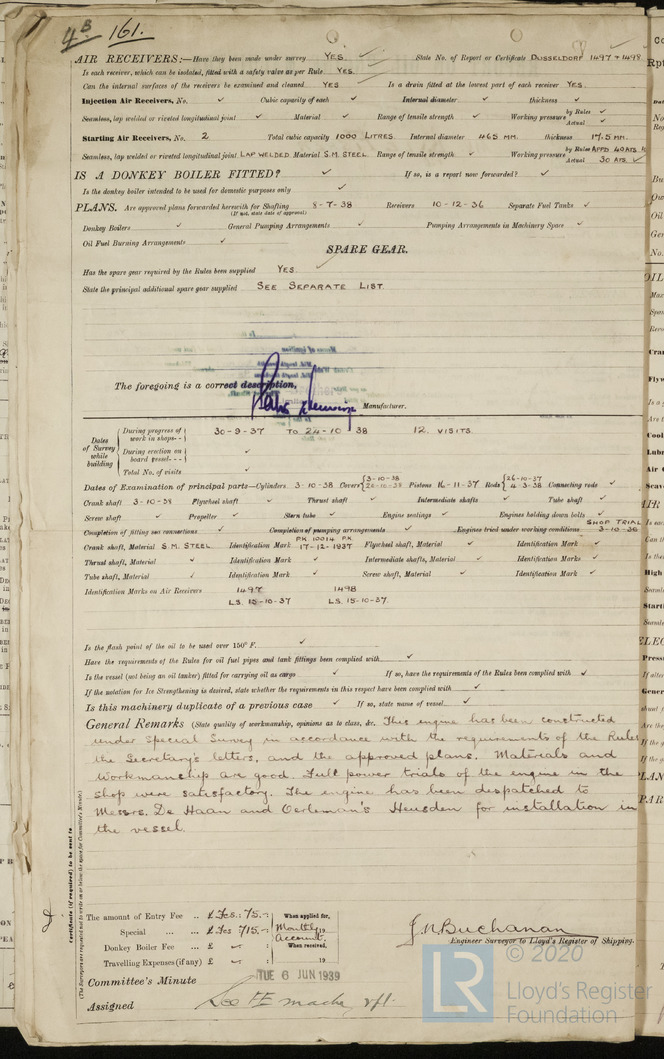 4B 161.
AIR RECEIVERS:—Have they been made under survey YES. State No. of Report or Certificate DUSSELDORF 1497 + 1498
Is each receiver, which can be isolated, fitted with a safety valve as per Rule YES.
Can the internal surfaces of the receivers be examined and cleaned YES Is a drain fitted at the lowest part of each receiver YES.
Injection Air Receivers, No. ✓ Cubic capacity of each ✓ Internal diameter ✓ thickness ✓
Seamless, lap welded or riveted longitudinal joint ✓ Material ✓ Range of tensile strength ✓ Working pressure by Rules ✓ Actual ✓
Starting Air Receivers, No. 2 Total cubic capacity 1000 LITRES. Internal diameter 465 MM. thickness 17.5 MM.
Seamless, lap welded or riveted longitudinal joint LAP WELDED Material S.M. STEEL Range of tensile strength ✓ Working pressure by Rules APPD 40 ATS Actual 30 ATS. ✓
IS A DONKEY BOILER FITTED? ✓ If so, is a report now forwarded? ✓
Is the donkey boiler intended to be used for domestic purposes only ✓
PLANS. Are approved plans forwarded herewith for Shafting 8-7-38 Receivers 10-12-36 Separate Fuel Tanks ✓
(If not, state date of approval)
Donkey Boilers ✓ General Pumping Arrangements ✓ Pumping Arrangements in Machinery Space ✓
Oil Fuel Burning Arrangements ✓
SPARE GEAR.
Has the spare gear required by the Rules been supplied YES.
State the principal additional spare gear supplied SEE SEPARATE LIST.
The foregoing is a correct description,
Manufacturer.
Dates of Survey while building
During progress of work in shops - - 30-9-37 TO 24-10 38 12. VISITS.
During erection on board vessel - - - ✓
Total No. of visits ✓
Dates of Examination of principal parts—Cylinders 3-10-38 Covers 3-10-38 26-10-38 Pistons 16-11-37 Rods 26-10-37 4-3-38 Connecting rods ✓
Crank shaft 3-10-38 Flywheel shaft ✓ Thrust shaft ✓ Intermediate shafts ✓ Tube shaft ✓
Screw shaft ✓ Propeller ✓ Stern tube ✓ Engine seatings ✓ Engines holding down bolts ✓
Completion of fitting sea connections ✓ Completion of pumping arrangements ✓ Engines tried under working conditions SHOP TRIAL 3-10-38
Crank shaft, Material S.M. STEEL Identification Mark PK 10014 PK 17-12-1937 Flywheel shaft, Material ✓ Identification Mark ✓
Thrust shaft, Material ✓ Identification Mark ✓ Intermediate shafts, Material ✓ Identification Marks ✓
Tube shaft, Material ✓ Identification Mark ✓ Screw shaft, Material ✓ Identification Mark ✓
Identification Marks on Air Receivers 1497 1498
LS. 15-10-37 LS. 15-10-37.
Is the flash point of the oil to be used over 150° F. ✓
Have the requirements of the Rules for oil fuel pipes and tank fittings been complied with ✓
Is the vessel (not being an oil tanker) fitted for carrying oil as cargo ✓ If so, have the requirements of the Rules been complied with ✓
If the notation for Ice Strengthening is desired, state whether the requirements in this respect have been complied with ✓
Is this machinery duplicate of a previous case ✓ If so, state name of vessel ✓
General Remarks (State quality of workmanship, opinions as to class, &c. This engine has been constructed
under special survey in accordance with the requirements of the Rules
the Secretary's letters, and the approved plans. Materials and
workmanship are good. Full power trials of the engine in the
shop were satisfactory. The engine has been despatched to
Messrs. De Haan and Oerleman's Heusden for installation in
the vessel.
Certificate (if required) to be sent to
(The Surveyors are requested not to write on or below the space for Committee's Minute.)
The amount of Entry Fee .. £ Fcs: 75.- When applied for,
Special ... ... £ Fcs 715.- Monthly 19 Account.
Donkey Boiler Fee ... £ When received,
Travelling Expenses (if any) £ 19
J.N. Buchanan
Engineer Surveyor to Lloyd's Register of Shipping.
TUE 6 JUN 1939
Committee's Minute
Assigned See F.E. machy rpt.
LR © 2020
Lloyd's Register
Foundation